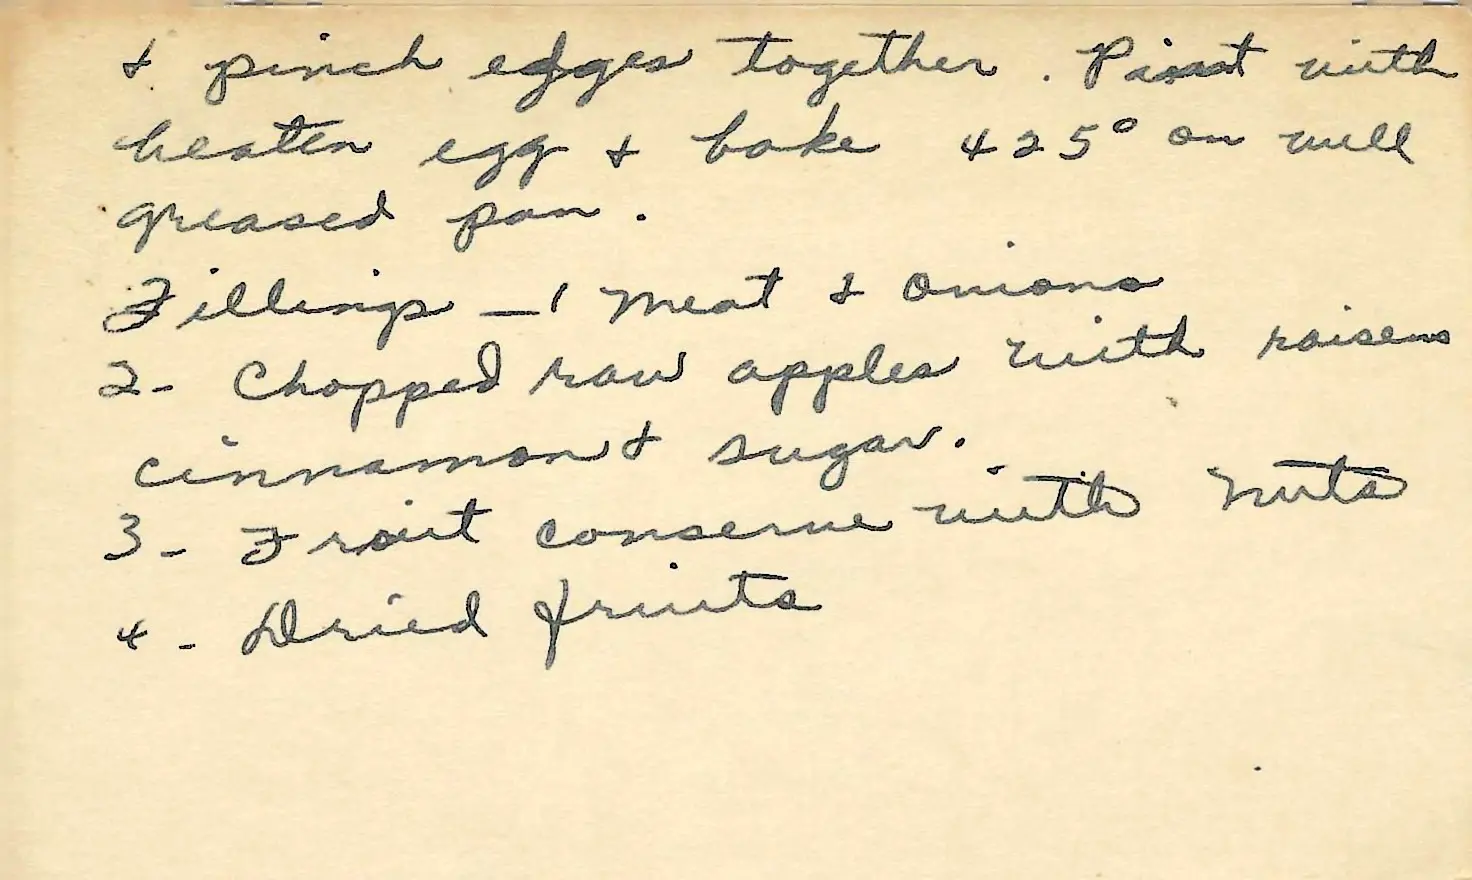 & pinch edges together. with
beaten egg & bake 425° on well
greased pan.
Fillings - 1 Meat & Onions
2- Chopped raw apples with raisens
cinnamon & sugar.
3- Fruit conserve with nuts
4- Dried fruits